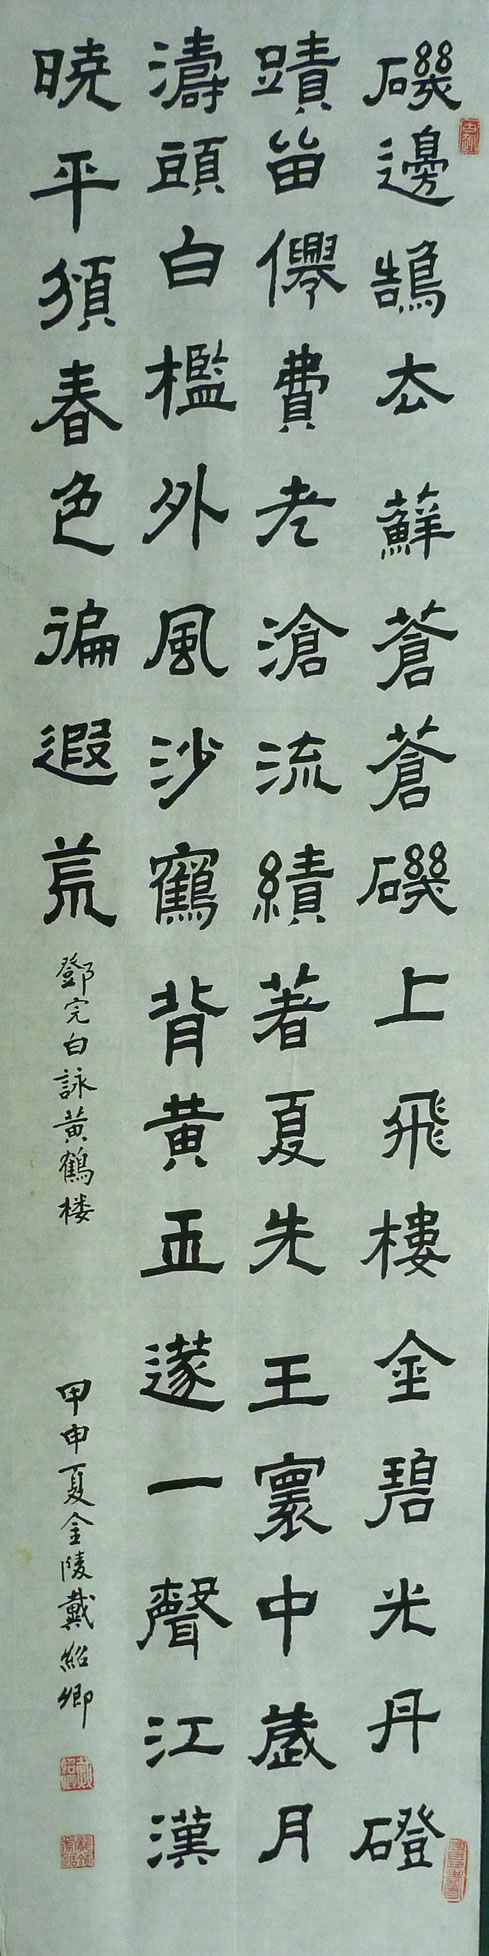 磯邊鵠去蘚蒼蒼磯上飛樓金碧光丹磴
蹟畱僊費老滄流績著夏先王寰中歲月
濤頭白檻外風沙鶴背黃玉篴一聲江漢
曉平頒春色徧遐荒
鄧完白詠黄鶴楼
甲申夏金陵戴紹卿